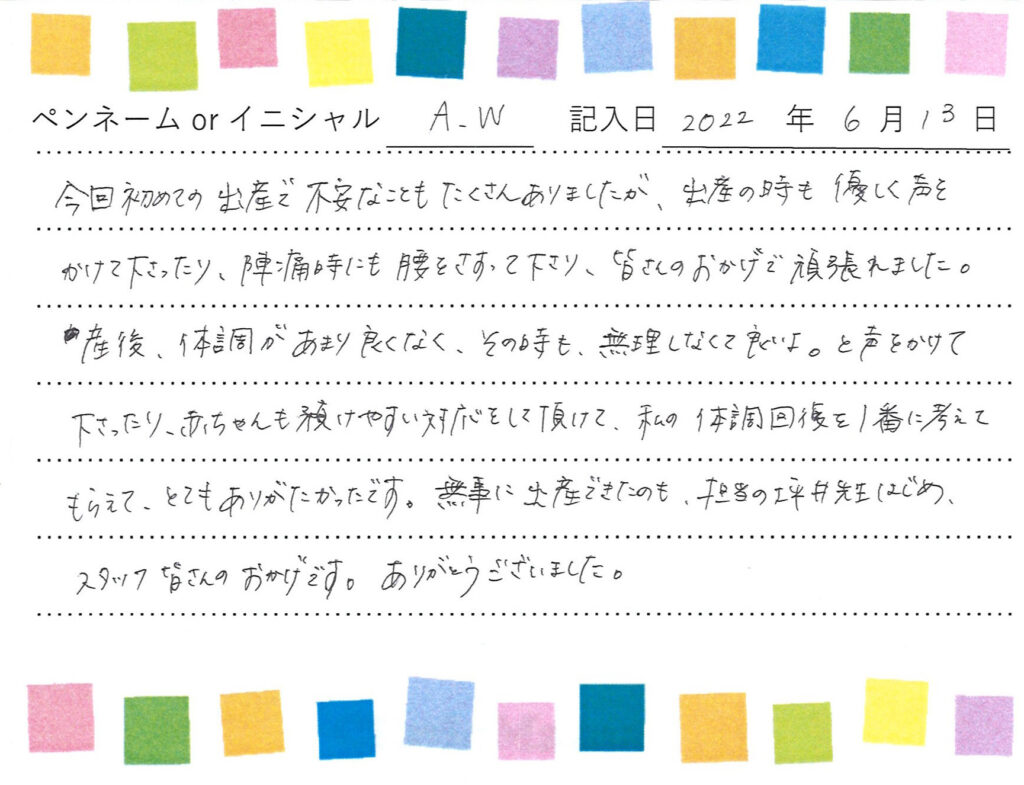 ペンネーム or イニシャル A.W 記入日 2022 年 6 月 13 日
今回初めての出産で不安なこともたくさんありましたが、出産の時も優しく声を
かけて下さったり、陣痛時にも腰をさすって下さり、皆さんのおかげで頑張れました。
産後、体調があまり良くなく、その時も、無理しなくて良いよ。と声をかけて
下さったり、赤ちゃんも預けやすい対応をして頂けて、私の体調回復を1番に考えて
もらえて、とてもありがたかったです。無事に出産できたのも、担当の坪井先生はじめ、
スタッフ皆さんのおかげです。ありがとうございました。